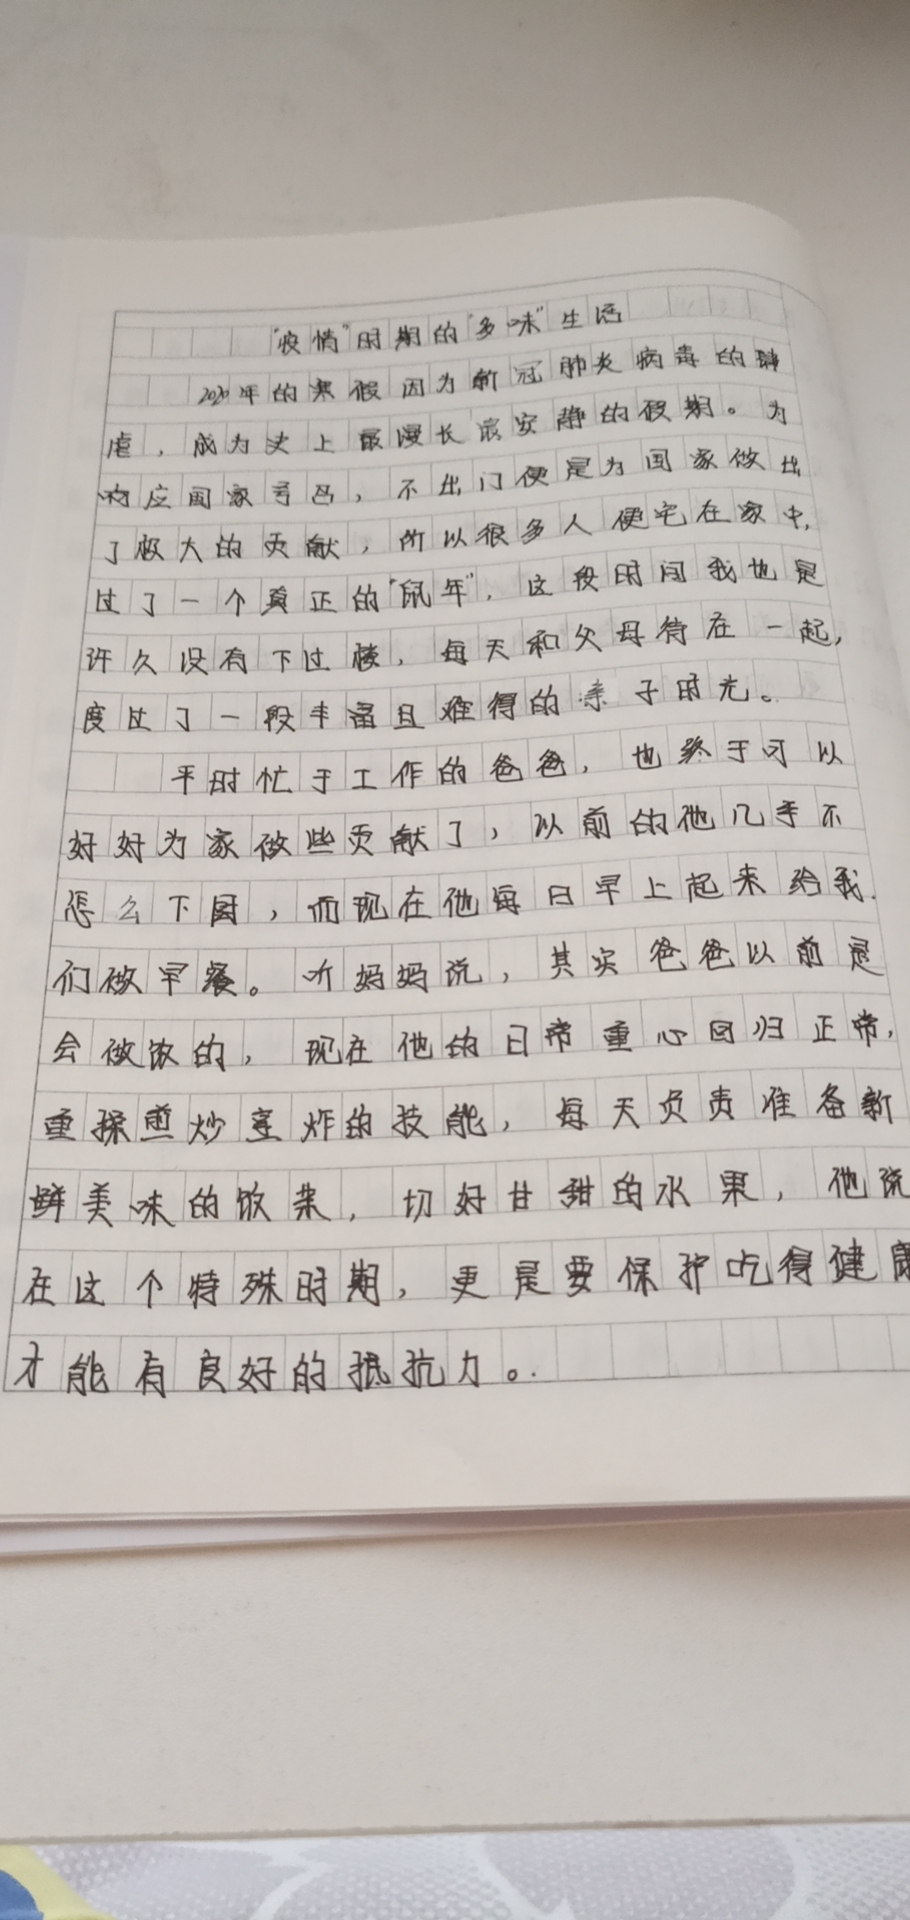 “疫情”时期的“多味”生活
2020年的寒假因为新冠肺炎病毒的肆
虐，成为史上最漫长最安静的假期。为
响应国家号召，不出门便是为国家做出
了极大的贡献，所以很多人便宅在家中，
过了一个真正的“鼠年”，这段时间我也是
许久没有下过楼，每天和父母待在一起，
度过了一段丰富且难得的亲子时光。
平时忙于工作的爸爸，也终于可以
好好为家做些贡献了，以前的他几乎不
怎么下厨，而现在他每日早上起来给我
们做早餐。听妈妈说，其实爸爸以前是
会做饭的，现在他的日常重心回归正常，
重操煎炒烹炸的技能，每天负责准备新
鲜美味的饭菜，切好甘甜的水果，他说
在这个特殊时期，更是要保护吃得健康
才能有良好的抵抗力。